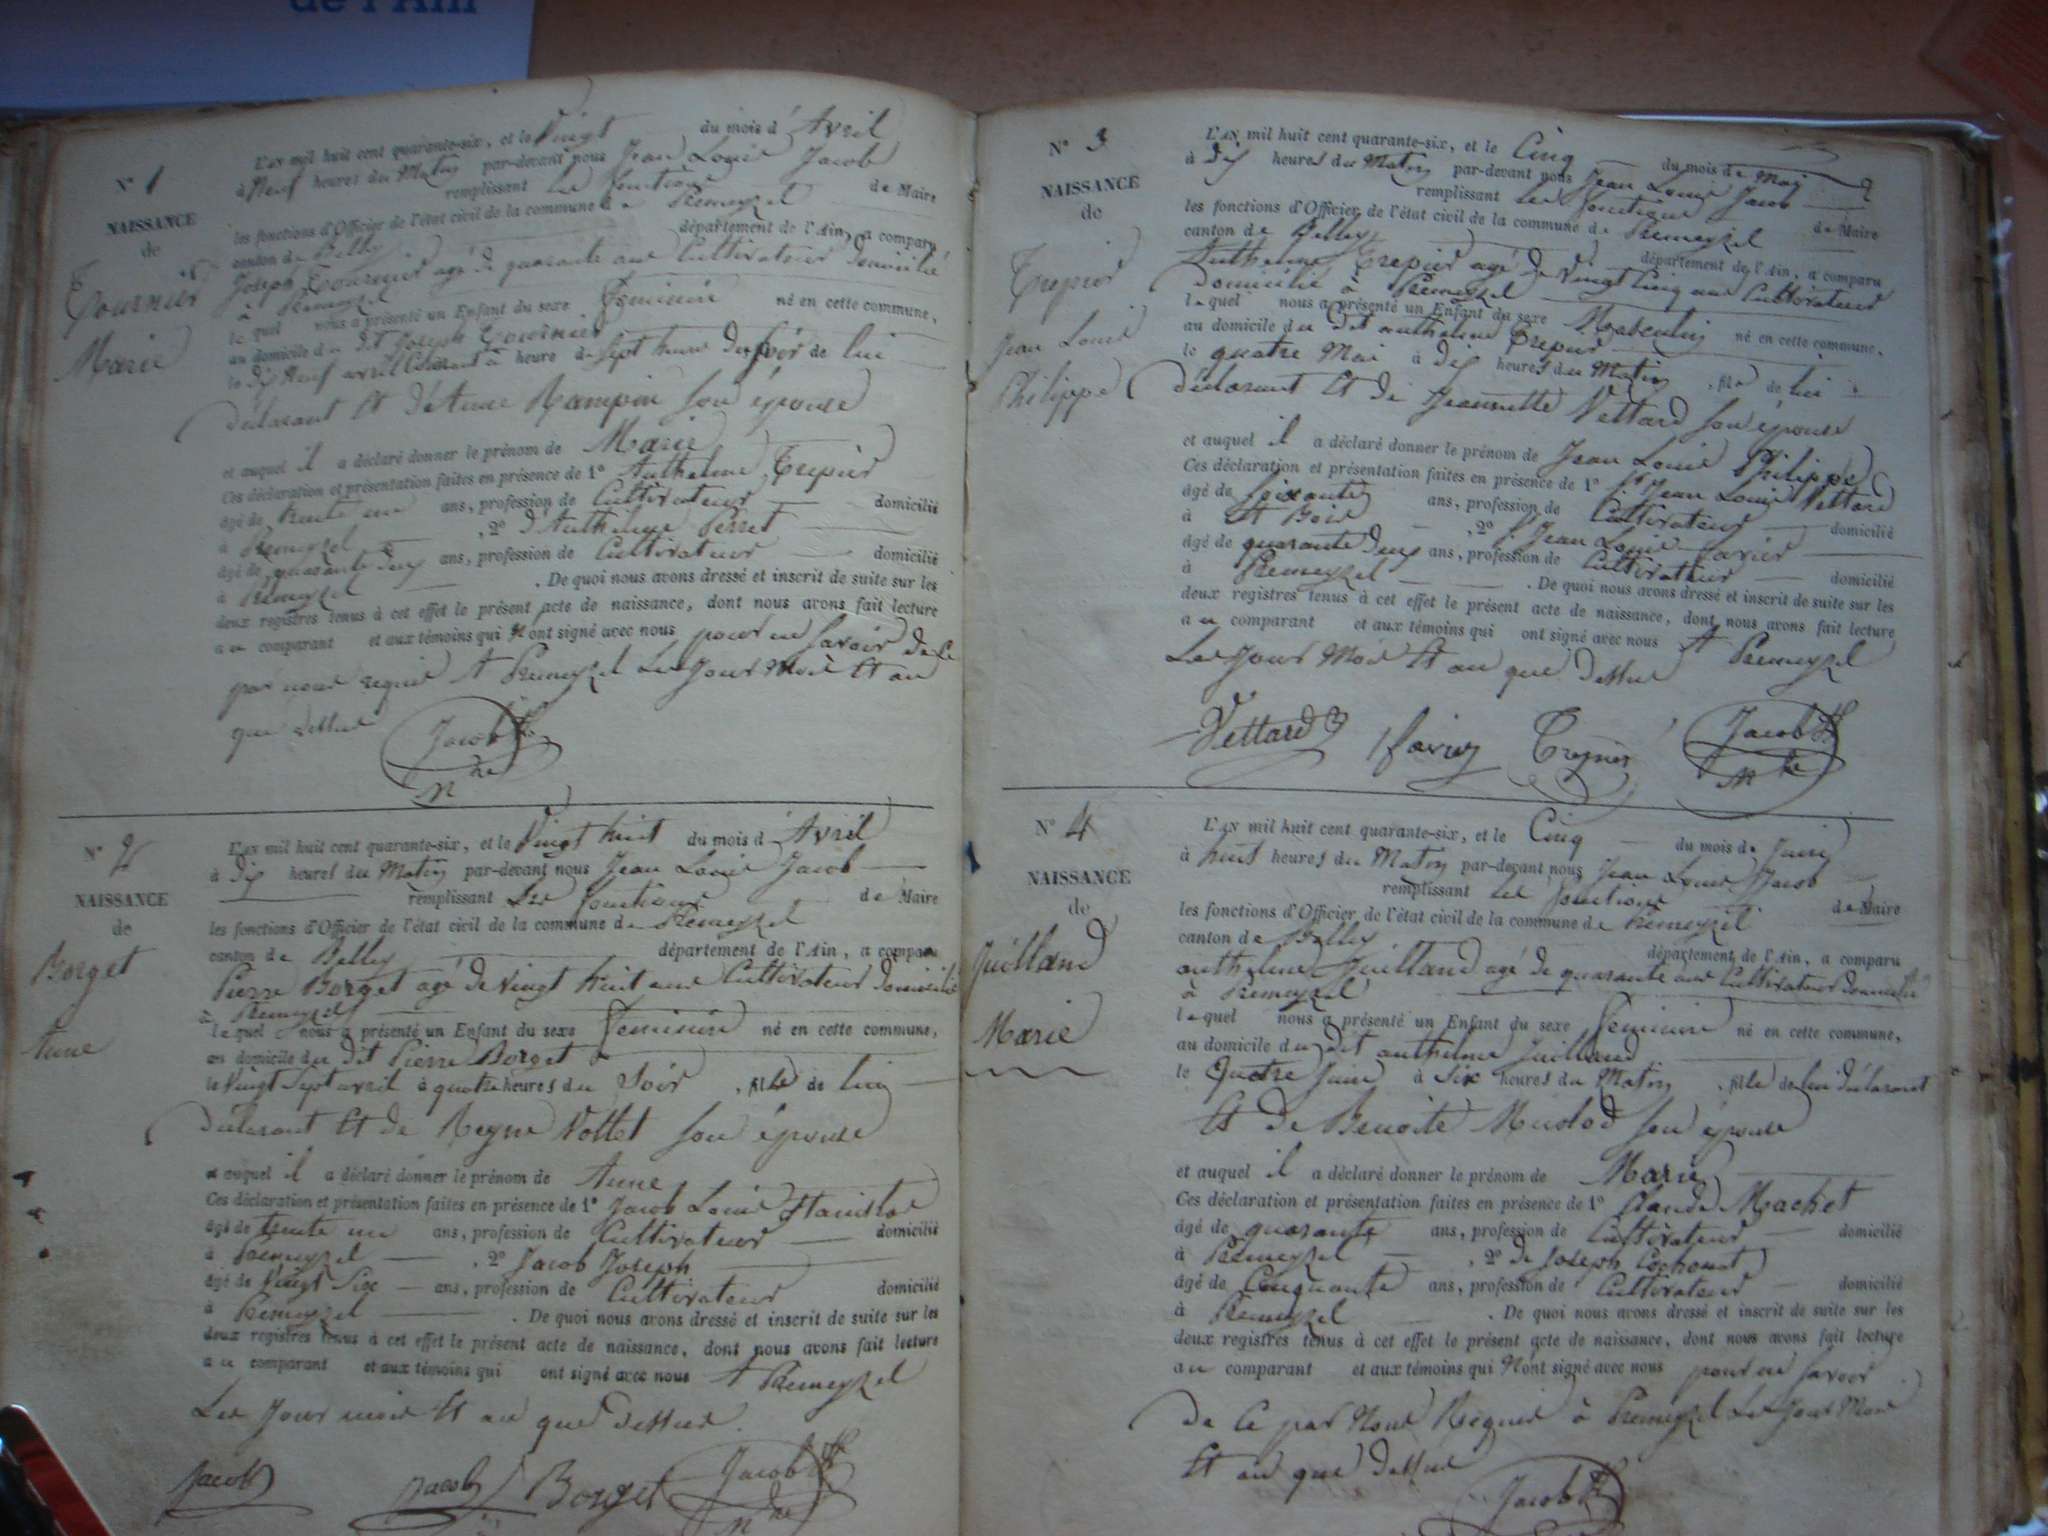 de l'Ain
N° 1
NAISSANCE
de
Tournier
Marie
L'AN mil huit cent quarante-six, et le Vingt du mois d'Avril
à Neuf heures du Matin par-devant nous Jean Louis Jacob
remplissant les fonctions de Maire
les fonctions d'Officier de l'état civil de la commune de Premeyzel
canton de Belley département de l'Ain, a comparu
Joseph Tournier agé de quarante ans Cultivateur domicilié
à Premeyzel
lequel nous a présenté un Enfant du sexe feminin né en cette commune,
au domicile du dit Joseph Tournier
le dix Neuf avril à heure de Sept heure du soir de lui
déclarant Et d'étune Rampin son épouse
et auquel il a déclaré donner le prénom de Marie
Ces déclaration et présentation faites en présence de 1° Anthelme Trepier
âgé de trente un ans, profession de Cultivateur domicilié
à Premeyzel , 2° d'Anthelme Perret
âgé de quarante deux ans, profession de Cultivateur domicilié
à Premeyzel . De quoi nous avons dressé et inscrit de suite sur les
deux registres tenus à cet effet le présent acte de naissance, dont nous avons fait lecture
au comparant et aux témoins qui N'ont signé avec nous pour ne savoir de ce
par nous requis A Premeyzel Les Jour Mois Et an
que dessus
Jacob
N° 2
NAISSANCE
de
Borget
Anne
L'AN mil huit cent quarante-six, et le Vingt huit du mois d'Avril
à dix heures du Matin par-devant nous Jean Louis Jacob
remplissant Les fonctions de Maire
les fonctions d'Officier de l'état civil de la commune de Premeyzel
canton de Belley département de l'Ain, a comparu
Pierre Borget agé de Vingt huit ans Cultivateur domicilié
à Premeyzel
lequel nous a présenté un Enfant du sexe feminin né en cette commune,
au domicile du dit Pierre Borget
le Vingt Sept avril à quatre heures du Soir , fille de lui
déclarant Et de Reyne Vollet son épouse
et auquel il a déclaré donner le prénom de Anne
Ces déclaration et présentation faites en présence de 1° Jacob Louis Stanislas
âgé de trente un ans, profession de Cultivateur domicilié
à Premeyzel , 2° Jacob Joseph
âgé de Vingt Six ans, profession de Cultivateur domicilié
à Premeyzel . De quoi nous avons dressé et inscrit de suite sur les
deux registres tenus à cet effet le présent acte de naissance, dont nous avons fait lecture
au comparant et aux témoins qui ont signé avec nous A Premeyzel
Les Jour mois Et an que dessus
Jacob Jacob Borget Jacob
N° 3
NAISSANCE
de
Trepier
Jean Louis
Philippe
L'AN mil huit cent quarante-six, et le Cinq du mois de Mai
à dix heures du Matin par-devant nous Jean Louis Jacob
remplissant les fonctions de Maire
les fonctions d'Officier de l'état civil de la commune de Premeyzel
canton de Belley département de l'Ain, a comparu
Anthelme Trepier agé de Vingt Cinq ans Cultivateur
domicilié à Premeyzel
lequel nous a présenté un Enfant du sexe Masculin né en cette commune,
au domicile du dit anthelme Trepier
le quatre Mai à dix heures du Matin , fils de lui
déclarant Et de Jeannette Vettard son épouse
et auquel il a déclaré donner le prénom de Jean Louis Philippe
Ces déclaration et présentation faites en présence de 1° Sr Jean Louis Vettard
âgé de Soixante ans, profession de Cultivateur domicilié
à St Bois , 2° Sr Jean Louis Favier
âgé de quarante deux ans, profession de Cultivateur domicilié
à Premeyzel . De quoi nous avons dressé et inscrit de suite sur les
deux registres tenus à cet effet le présent acte de naissance, dont nous avons fait lecture
au comparant et aux témoins qui ont signé avec nous A Premeyzel
Les Jour Mois Et an que dessus
Vettard Trepier Jacob
N° 4
NAISSANCE
de
Juilland
Marie
L'AN mil huit cent quarante-six, et le Cinq du mois de Juin
à huit heures du Matin par-devant nous Jean Louis Jacob
remplissant les fonctions de Maire
les fonctions d'Officier de l'état civil de la commune de Premeyzel
canton de Belley département de l'Ain, a comparu
anthelme Juilland agé de quarante ans Cultivateur domicilié
à Premeyzel
lequel nous a présenté un Enfant du sexe feminin né en cette commune,
au domicile du dit anthelme Juilland
le Quatre Juin à Six heures du Matin , fille de lui déclarant
Et de Benoite Son épouse
et auquel il a déclaré donner le prénom de Marie
Ces déclaration et présentation faites en présence de 1° Claude Machet
âgé de quarante ans, profession de Cultivateur domicilié
à Premeyzel , 2° de Joseph Cochonat
âgé de Cinquante ans, profession de Cultivateur domicilié
à Premeyzel . De quoi nous avons dressé et inscrit de suite sur les
deux registres tenus à cet effet le présent acte de naissance, dont nous avons fait lecture
au comparant et aux témoins qui N'ont signé avec nous pour ne savoir
de ce par Nous Requis à Premeyzel Les Jour Mois
Et an que dessus
Jacob